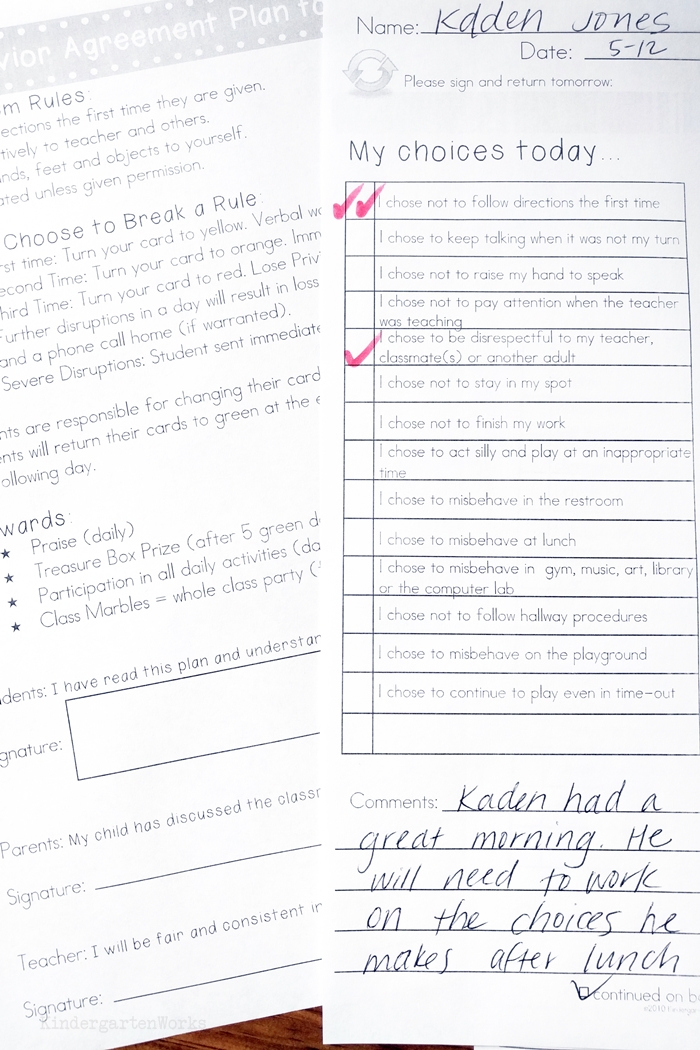 vior Agreement Plan fo
m Rules:
ections the first time they are given.
tively to teacher and others.
nds, feet and objects to yourself.
ated unless given permission.
Choose to Break a Rule:
rst time: Turn your card to yellow. Verbal wa
econd Time: Turn your card to orange. Imm
hird Time: Turn your card to red. Lose Privi
urther disruptions in a day will result in loss
and a phone call home (if warranted).
Severe Disruptions: Student sent immediate
nts are responsible for changing their card
ents will return their cards to green at the e
ollowing day.
wards:
★ Praise (daily)
★ Treasure Box Prize (after 5 green d
★ Participation in all daily activities (da
★ Class Marbles = whole class party (
dents: I have read this plan and understan
gnature:
Parents: My child has discussed the classr
Signature:
Teacher: I will be fair and consistent in
Signature:
KindergartenWorks
Name: Kaden Jones
Date: 5-12
Please sign and return tomorrow:
My choices today...
I chose not to follow directions the first time
I chose to keep talking when it was not my turn
I chose not to raise my hand to speak
I chose not to pay attention when the teacher
was teaching
I chose to be disrespectful to my teacher,
classmate(s) or another adult
I chose not to stay in my spot
I chose not to finish my work
I chose to act silly and play at an inappropriate
time
I chose to misbehave in the restroom
I chose to misbehave at lunch
I chose to misbehave in gym, music, art, library
or the computer lab
I chose not to follow hallway procedures
I chose to misbehave on the playground
I chose to continue to play even in time-out
Comments: Kaden had a
great morning. He
will need to work
on the choices he
makes after lunch
continued on b